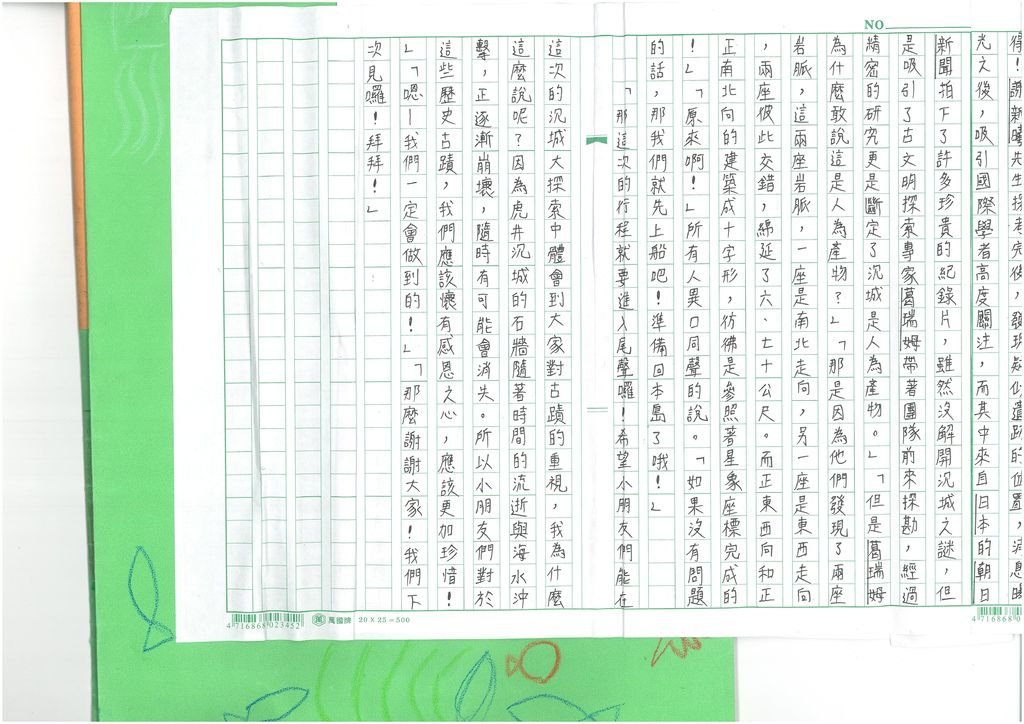 NO
得！謝新曦先生探考完後，發現疑似遺跡的位置，消息曝
光之後，吸引國際學者高度關注，而其中來自日本的朝日
新聞拍下了許多珍貴的紀錄片，雖然沒解開沉城之謎，但
是吸引了古文明探索專家葛瑞姆帶著團隊前來探勘，經過
精密的研究更是斷定了沉城是人為產物。」「但是葛瑞姆
為什麼敢說這是人為產物？」「那是因為他們發現了兩座
岩脈，這兩座岩脈，一座是南北走向，另一座是東西走向
，兩座彼此交錯，綿延了六、七十公尺。而正東西向和正
正南北向的建築成十字形，彷彿是參照著星象座標完成的
！」「原來啊！」所有人異口同聲的說。「如果沒有問題
的話，那我們就先上船吧！準備回本島了哦！」
「那這次的行程就要進入尾聲囉！希望小朋友們能在
這次的沉城大探索中體會到大家對古蹟的重視，我為什麼
這麼說呢？因為虎井沉城的石牆隨著時間的流逝與海水沖
擊，正逐漸崩壞，隨時有可能會消失。所以小朋友們對於
這些歷史古蹟，我們應該懷有感恩之心，應該更加珍惜！
」「嗯！我們一定會做到的！」「那麼謝謝大家！我們下
次見囉！拜拜！」
4 716868 023452
萬國牌 20 X 25 = 500
4 716868 0